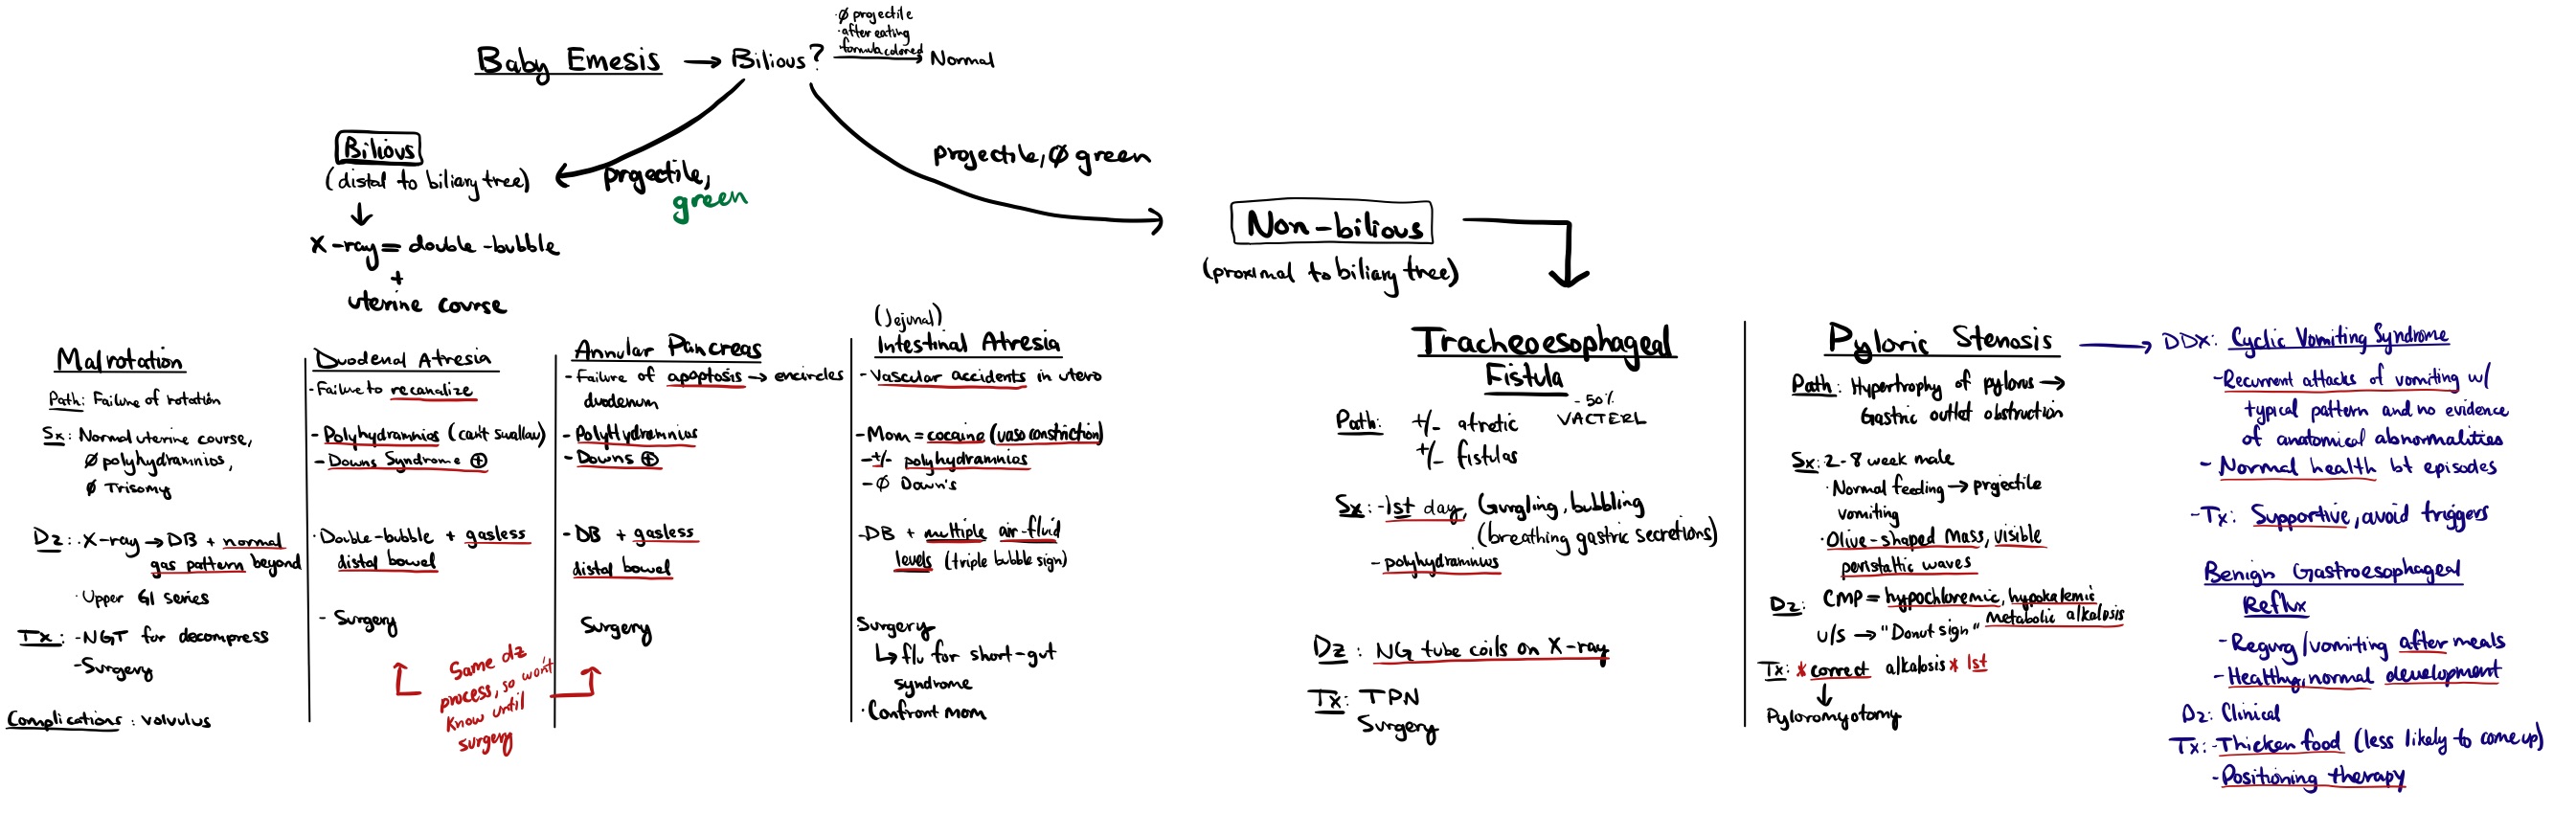 Baby Emesis → Bilious?
·Ø projectile
·after eating
formula colored
Normal
Bilious
(distal to biliary tree)
projectile,
green
↓
X-ray = double-bubble
+
uterine course
projectile, Ø green
Non-bilious
(proximal to biliary tree)
Malrotation
Path: Failure of rotation
Sx: Normal uterine course,
Ø polyhydramnios,
Ø Trisomy
Dz: ·X-ray → DB + normal
gas pattern beyond
·Upper GI series
Tx: -NGT for decompress
-Surgery
Complications: volvulus
Duodenal Atresia
-Failure to recanalize
-Polyhydramnios (can't swallow)
-Downs Syndrome ⊕
·Double-bubble + gasless
distal bowel
- Surgery
Same dz
process, so won't
Know until
surgery
Annular Pancreas
-Failure of apoptosis → encircles
duodenum
-PolyHydramnios
-Downs ⊕
-DB + gasless
distal bowel
Surgery
(Jejunal)
Intestinal Atresia
-Vascular accidents in utero
-Mom = cocaine (vasoconstriction)
-+/- polyhydramnios
-Ø Down's
-DB + multiple air-fluid
levels (triple bubble sign)
Surgery
↳ f/u for short-gut
syndrome
·Confront mom
Tracheoesophageal
Fistula
- 50%
VACTERL
Path: +/- atretic
+/- fistulas
Sx: -1st day, Gurgling, bubbling
(breathing gastric secretions)
-polyhydramnios
Dz: NG tube coils on X-ray
Tx: TPN
Surgery
Pyloric Stenosis
Path: Hypertrophy of pylorus →
Gastric outlet obstruction
Sx: 2-8 week male
·Normal feeding → projectile
vomiting
·Olive-shaped Mass, visible
peristaltic waves
Dz: CMP = hypochloremic, hypokalemic
Metabolic alkalosis
u/s → "Donut sign"
Tx: *correct alkalosis* 1st
↓
Pyloromyotomy
DDX: Cyclic Vomiting Syndrome
-Recurrent attacks of vomiting w/
typical pattern and no evidence
of anatomical abnormalities
- Normal health bt episodes
-Tx: Supportive, avoid triggers
Benign Gastroesophageal
Reflux
-Regurg/vomiting after meals
-Healthy, normal development
Dz: Clinical
Tx: -Thicken food (less likely to come up)
-Positioning therapy